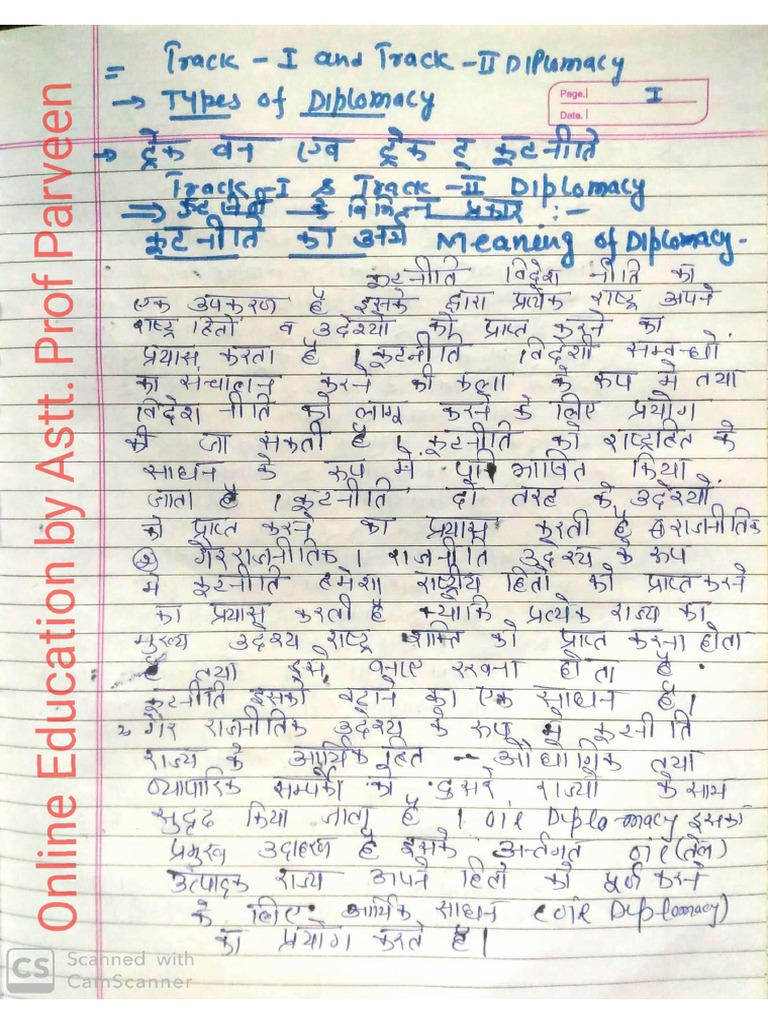 = Track - I and Track - II Diplomacy
→ Types of Diplomacy
Page. I
Date.
→ ट्रेक वन एवं ट्रेक टू कूटनीति
Track - I & Track - II Diplomacy
⇒ कूटनीति के विभिन्न प्रकार :-
कूटनीति का अर्थ Meaning of Diplomacy -
कूटनीति विदेश नीति का
एक उपकरण है इसके द्वारा प्रत्येक राष्ट्र अपने
राष्ट्र हितों व उदेश्यों को प्राप्त करने का
प्रयास करता है । कूटनीति विदेशी सम्बन्धों
का संचालन करने की कला के रूप में तथा
विदेश नीति को लागू करने के लिए प्रयोग
की जा सकती है । कूटनीति को राष्ट्रहित के
साधन के रूप में परिभाषित किया
जाता है । कूटनीति दो तरह के उदेश्यों
को प्राप्त करने का प्रयास करती है ① राजनीतिक
② गैर राजनीतिक । राजनीति उदेश्य के रूप
में कूटनीति हमेशा राष्ट्रीय हितों को प्राप्त करने
का प्रयास करती है क्योकि प्रत्येक राज्य का
मुख्य उदेश्य राष्ट्र शक्ति को प्राप्त करना होता
है तथा इसे बनाए रखना होता है .
कूटनीति इसको बढ़ाने का एक साधन है ।
2 गैर राजनीतिक उदेश्य के रूप में कूटनीति
राज्य के आर्थिक हित - औधोगिक तथा
व्यापारिक सम्पर्को को दुसरे राज्यो के साथ
सुदृढ किया जाता है । oil Diplomacy इसका
प्रमुख उदाहरण है इसके अर्न्तगत oil (तेल)
उत्पादक राज्य अपने हितो को पूर्ण करने
के लिए आर्थिक साधन (oil Diplomacy)
का प्रयोग करते है ।
Online Education by Astt. Prof Parveen
CS Scanned with
CamScanner